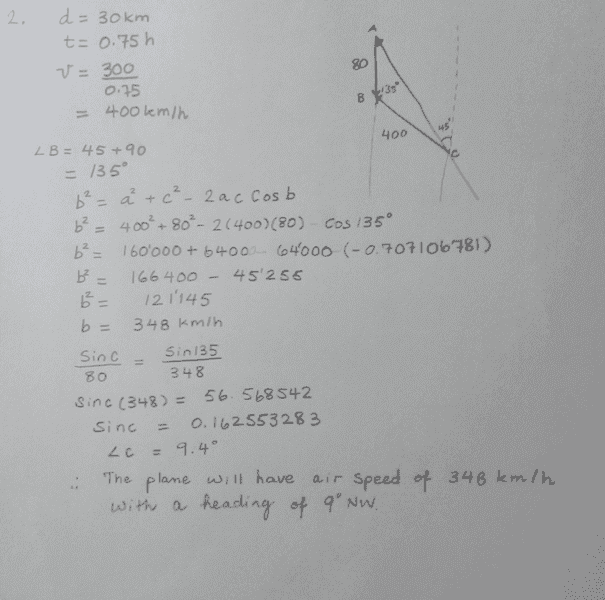 2. d = 30km
t = 0.75 h
v = 300
0.75
= 400 km/h
A
80
B
135°
400
45°
C
∠B = 45 + 90
= 135°
b² = a² + c² - 2 a c Cos b
b² = 400² + 80² - 2(400)(80) Cos 135°
b² = 160'000 + 6400 - 64'000 (-0.707106781)
b² = 166400 - 45'255
b² = 121'145
b = 348 km/h
Sin C = Sin 135
80 348
Sinc (348) = 56.568542
Sinc = 0.162553283
∠C = 9.4°
∴ The plane will have air speed of 348 km/h
with a heading of 9° NW.